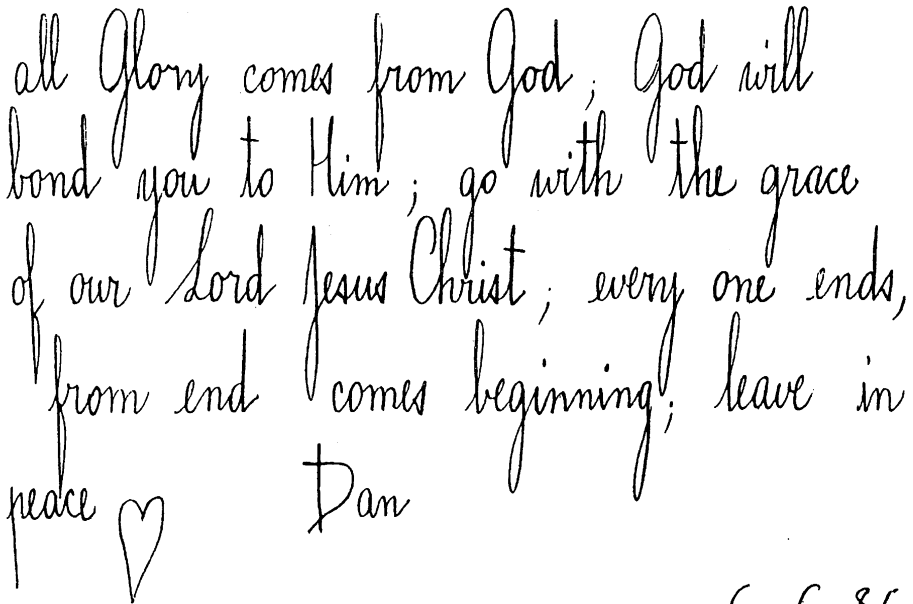 all Glory comes from God; God will
bond you to Him; go with the grace
of our Lord Jesus Christ; every one ends,
from end comes beginning; leave in
peace ♡ Dan